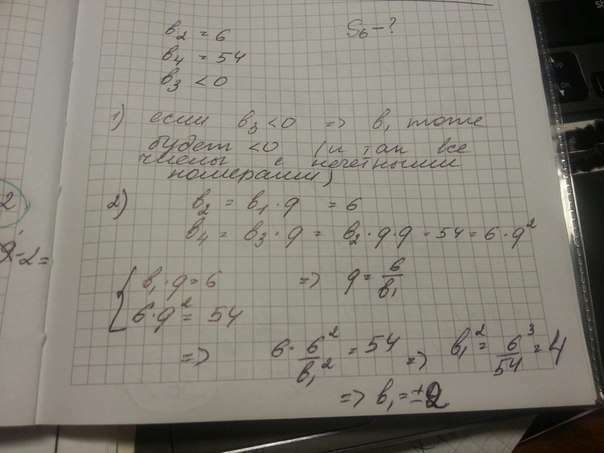 b₂ = 6 S₆ - ?
b₄ = 54
b₃ < 0
1) если b₃ < 0 => b₁ тоже
будет < 0 (и так все
числы с нечетными
номерами)
2) b₂ = b₁ · q = 6
b₄ = b₃ · q = b₂ · q · q = 54 = 6 · q²
{ b₁ · q = 6 => q = 6/b₁
6 · q² = 54
=> 6 · 6²/b₁² = 54 => b₁² = 6³/54 = 4
=> b₁ = ±2